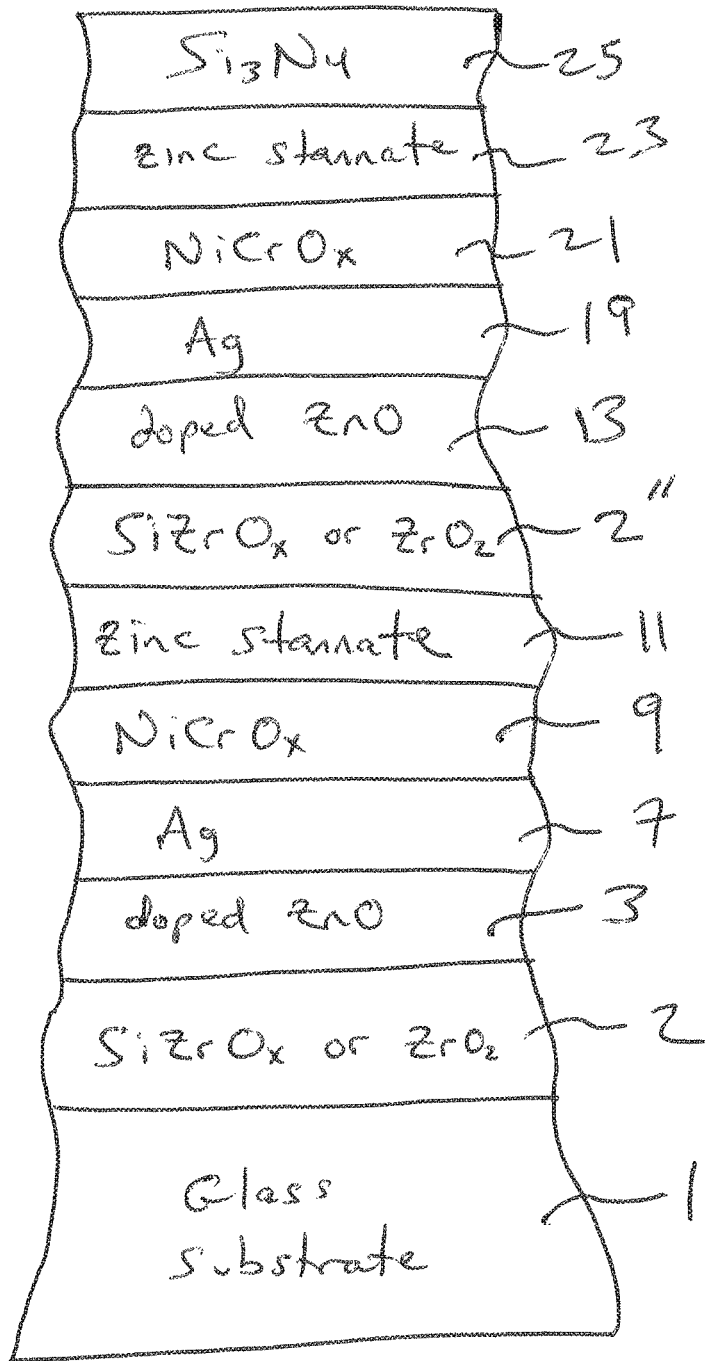 Si₃N₄ 25
zinc stannate 23
NiCrOₓ 21
Ag 19
doped ZnO 13
SiZrOₓ or ZrO₂ 2"
zinc stannate 11
NiCrOₓ 9
Ag 7
doped ZnO 3
SiZrOₓ or ZrO₂ 2
Glass 1
substrate